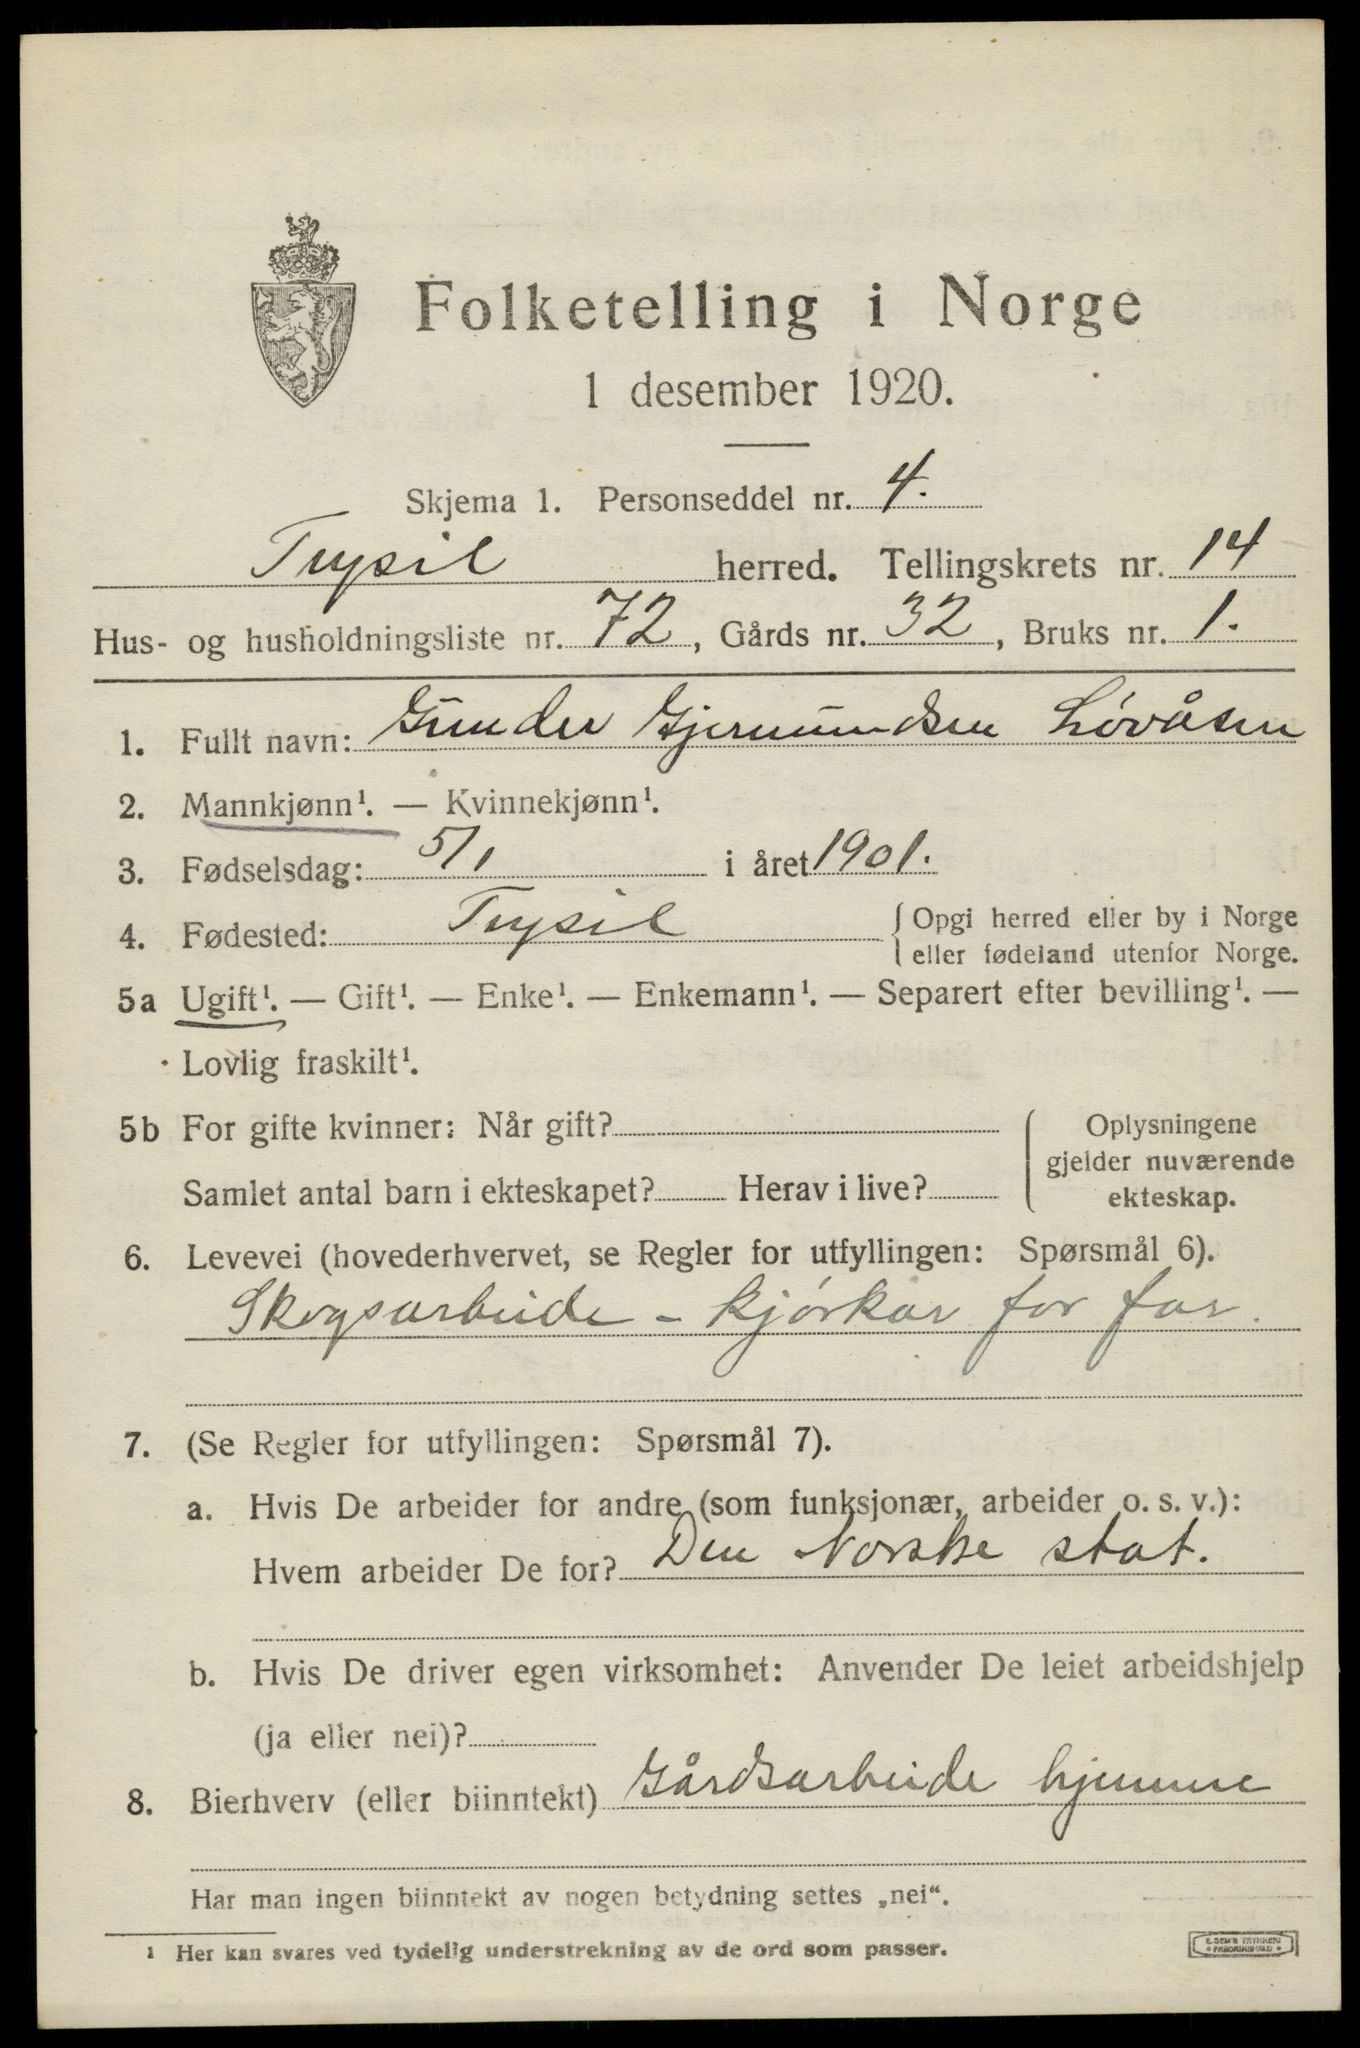 Folketelling i Norge
1 desember 1920.
Skjema 1. Personseddel nr. 4.
Trysil herred. Tellingskrets nr. 14
Hus- og husholdningsliste nr. 72, Gårds nr. 32, Bruks nr. 1.
1. Fullt navn: Gunder Gjermundsen Løvåsen
2. Mannkjønn¹. — Kvinnekjønn¹.
3. Fødselsdag: 5/1 i året 1901.
4. Fødested: Trysil { Opgi herred eller by i Norge
eller fødeland utenfor Norge.
5a Ugift¹. — Gift¹. — Enke¹. — Enkemann¹. — Separert efter bevilling¹. —
Lovlig fraskilt¹.
5b For gifte kvinner: Når gift? { Oplysningene
gjelder nuværende
Samlet antal barn i ekteskapet? Herav i live? ekteskap.
6. Levevei (hovederhvervet, se Regler for utfyllingen: Spørsmål 6).
Skogsarbeide - kjørkar for far.
7. (Se Regler for utfyllingen: Spørsmål 7).
a. Hvis De arbeider for andre (som funksjonær, arbeider o. s. v.):
Hvem arbeider De for? Den Norske stat.
b. Hvis De driver egen virksomhet: Anvender De leiet arbeidshjelp
(ja eller nei)?
8. Bierhverv (eller biinntekt) Gårdsarbeide hjemme
Har man ingen biinntekt av nogen betydning settes „nei“.
1 Her kan svares ved tydelig understrekning av de ord som passer.
E. SEM'S TRYKKERI
FREDRIKSHALD